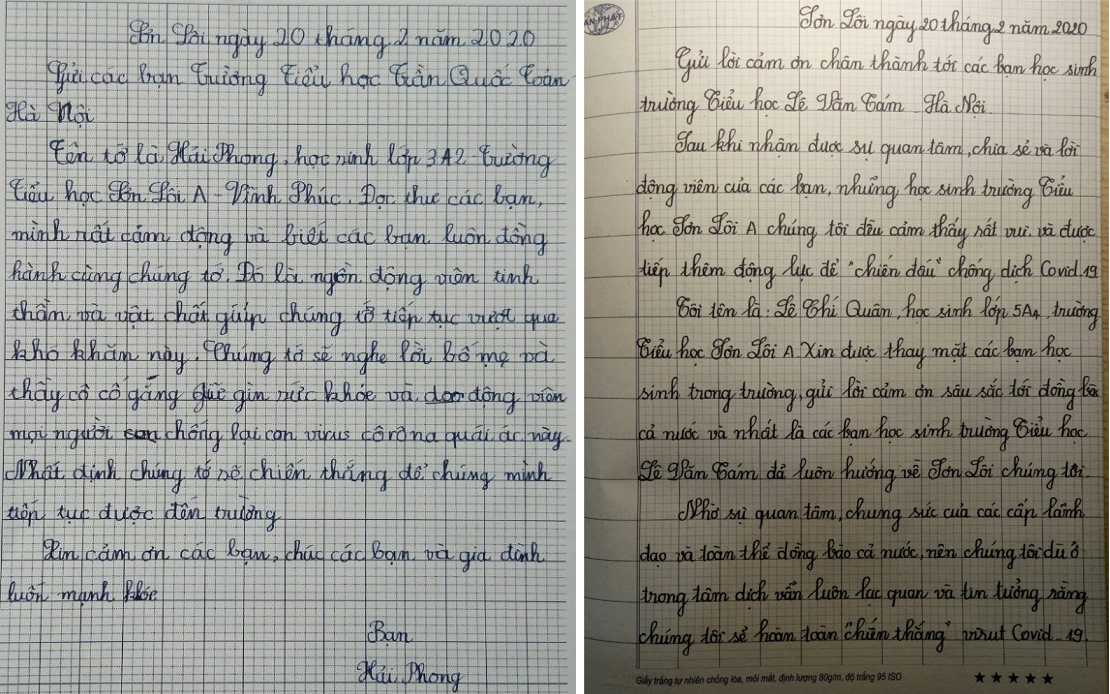 Sơn Lôi ngày 20 tháng 2 năm 2020
Gửi các bạn Trường Tiểu học Trần Quốc Toản
Hà Nội
Tên tớ là Hải Phong, học sinh lớp 3A2 Trường
Tiểu học Sơn Lôi A - Vĩnh Phúc. Đọc thư các bạn,
mình rất cảm động và biết các bạn luôn đồng
hành cùng chúng tớ. Đó là nguồn động viên tinh
thần và vật chất giúp chúng tớ tiếp tục vượt qua
khó khăn này. Chúng tớ sẽ nghe lời bố mẹ và
thầy cô cố gắng giữ gìn sức khỏe và động viên
mọi người chống lại con virus côrôna quái ác này.
Nhất định chúng tớ sẽ chiến thắng để chúng mình
tiếp tục được đến trường
Xin cảm ơn các bạn, chúc các bạn và gia đình
luôn mạnh khỏe
Bạn
Hải Phong
AN PHÁT
Sơn Lôi ngày 20 tháng 2 năm 2020
Gửi lời cảm ơn chân thành tới các bạn học sinh
trường Tiểu học Lê Văn Tám - Hà Nội.
Sau khi nhận được sự quan tâm, chia sẻ và lời
động viên của các bạn, những học sinh trường Tiểu
học Sơn Lôi A chúng tôi đều cảm thấy rất vui. và được
tiếp thêm động lực để "chiến đấu" chống dịch Covid.19
Tôi tên là: Lê Thị Quân, học sinh lớp 5A4, trường
Tiểu học Sơn Lôi A Xin được thay mặt các bạn học
sinh trong trường, gửi lời cảm ơn sâu sắc tới đồng bào
cả nước và nhất là các bạn học sinh trường Tiểu học
Lê Văn Tám đã luôn hướng về Sơn Lôi chúng tôi.
Nhờ sự quan tâm, chung sức của các cấp lãnh
đạo và toàn thể đồng bào cả nước, nên chúng tôi dù ở
trong tâm dịch vẫn luôn lạc quan và tin tưởng rằng
chúng tôi sẽ hoàn toàn "chiến thắng" virut Covid-19.
Giấy trắng tự nhiên chống lóa, mỏi mắt, định lượng 80g/m, độ trắng 95 ISO